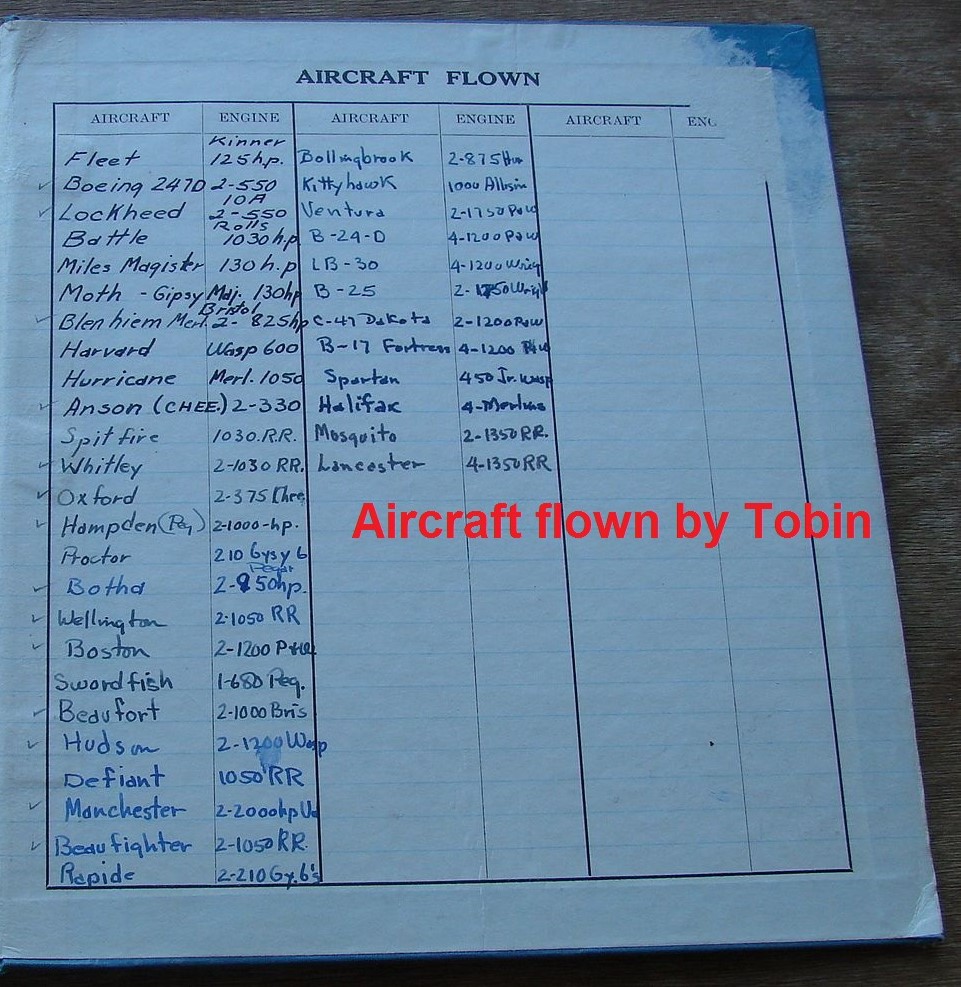 AIRCRAFT FLOWN
AIRCRAFT ENGINE AIRCRAFT ENGINE AIRCRAFT ENG
Kinner
Fleet 125 h.p. Bollingbrook 2-875
Boeing 247D 2-550 Kittyhawk 1000
10A
Lockheed 2-550 Ventura 2-1750 P&W
Rolls
Battle 1030 h.p B-24-D 4-1200 P&W
Miles Magister 130 h.p LB-30 4-1200 Wrig
Moth - Gipsy Maj. 130hp B-25 2-1750 Wrigt
Bristol
Blenhiem Merl. 2-825hp C-47 Dakota 2-1200 P&W
Harvard Wasp 600 B-17 Fortress 4-1200
Hurricane Merl. 1050 Spartan 450 Jr. Wasp
Anson (CHEE.) 2-330 Halifax 4-Merlins
Spitfire 1030 R.R. Mosquito 2-1350 RR.
Whitley 2-1030 RR. Lancaster 4-1350 RR
Oxford 2-375 Chee
Hampden (Peg) 2-1000-hp.
Proctor 210 Gysy 6
Botha 2-850hp.
Wellington 2-1050 RR
Boston 2-1200 P+W
Swordfish 1-680 Peg.
Beaufort 2-1000 Bris
Hudson 2-1200 Wasp
Defiant 1050 RR
Manchester 2-2000hp
Beaufighter 2-1050 RR.
Rapide 2-210 Gy. 6's
Aircraft flown by Tobin